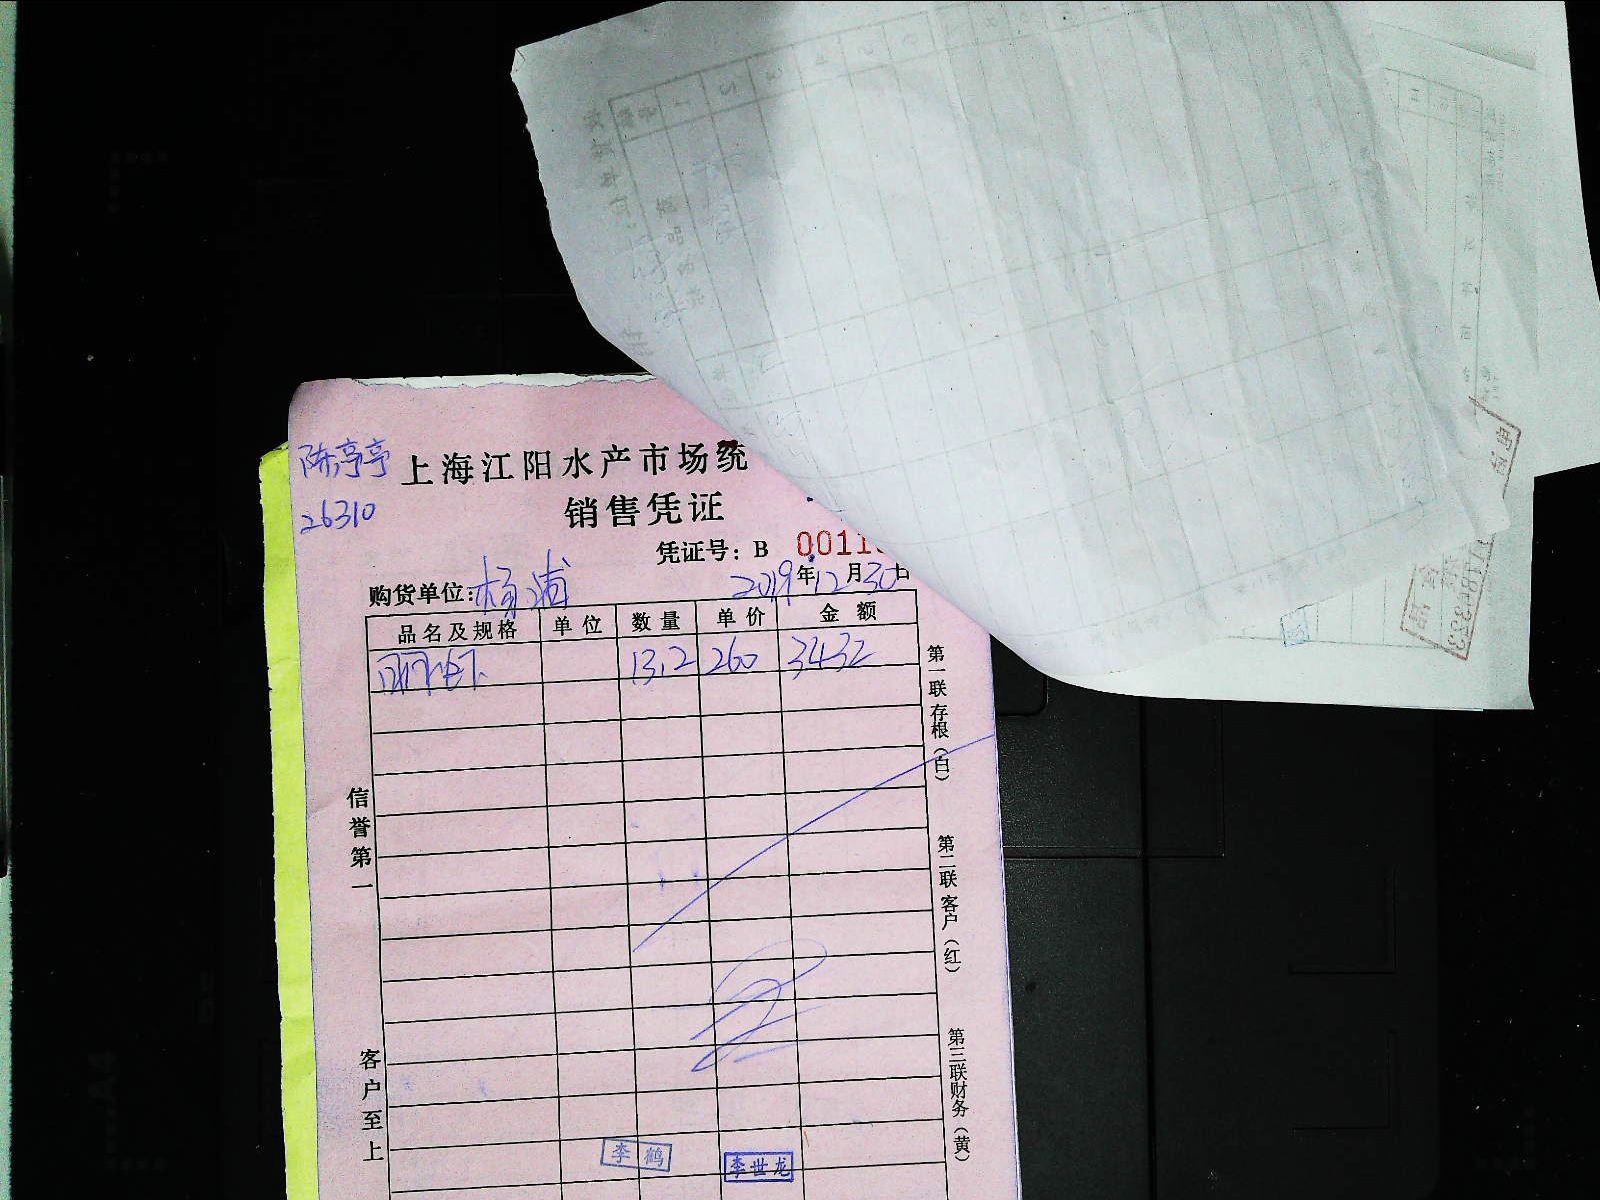 陈亭亭
26310
上海江阳水产市场统
销售凭证
凭证号：B 0011
购货单位：杨浦 2019年12月30日
品名及规格 单位 数量 单价 金额
13.2 260 3432
信誉第一
客户至上
第一联存根（白）
第二联客户（红）
第三联财务（黄）
李鹤
李世龙